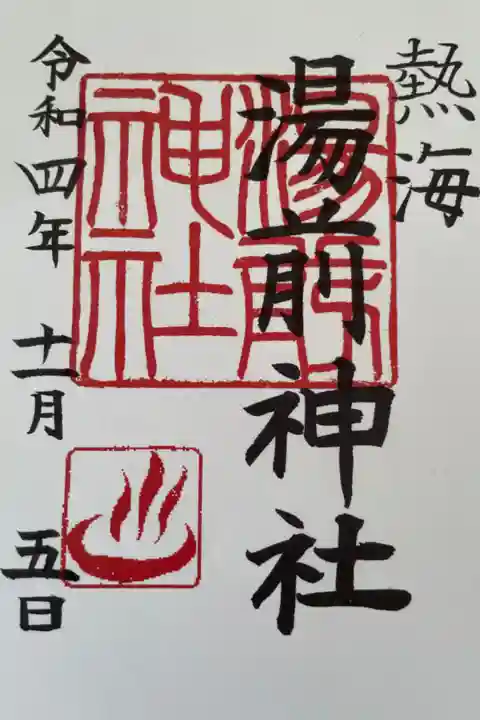 熱海
湯前神社
湯前
神社
令和四年十一月五日